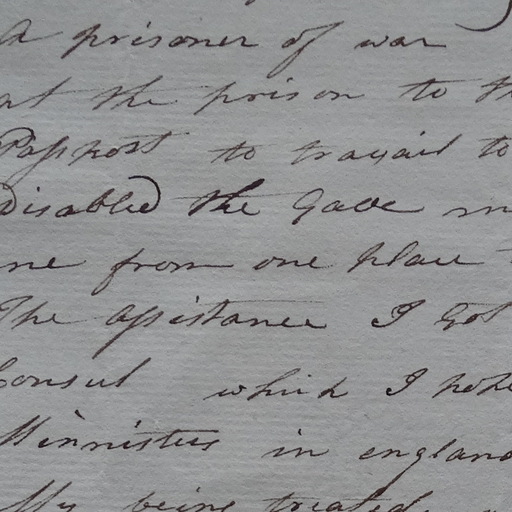 A prisoner of war
at the prison to th
Passport to travail to
Disabled the Gave m
me from one place
The assistance I Got
Consul which I hope
Minnisters in england
being treated